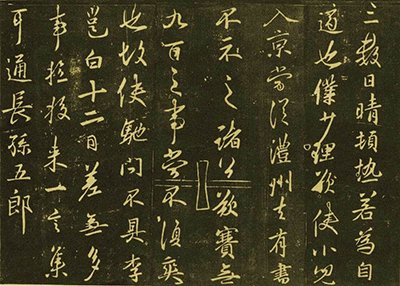 三數日晴頓熱若為自
適也僕少理欲使小兒
入京當從澧州去有書
不示之諸公欲賽無
九百之事當不須爽
也故使馳問不具李
邕白十二日差無多
事擬投來一言集
耳通長孫五郎